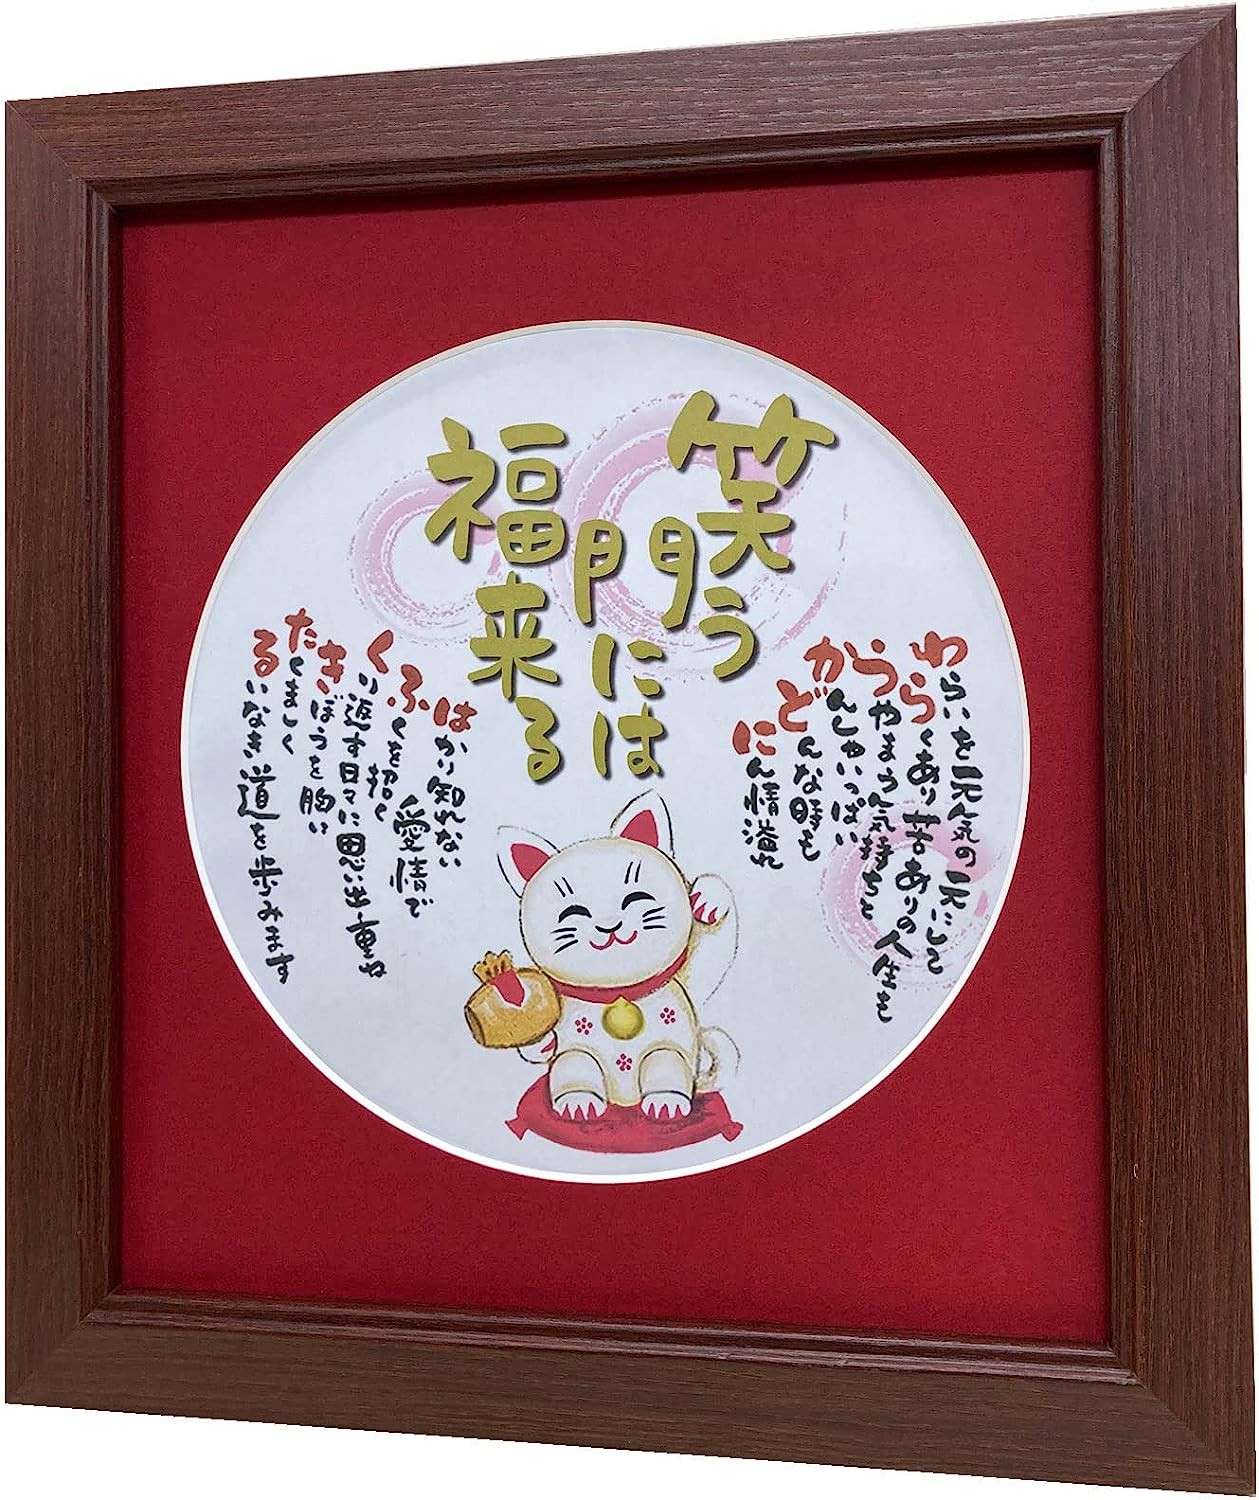 笑う
門には
福来る
わらいを元気の元にして
らくあり苦ありの人生も
うやまう気持ちと
かんしゃいっぱい
どんな時も
にん情溢れ
はかり知れない
愛情で
ふくを招く
くり返す日々に思い出重ね
きぼうを胸に
たくましく
るいなき道を歩みます